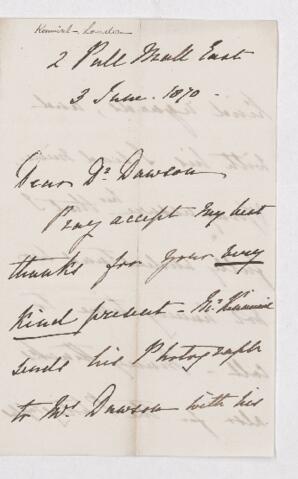 Kennicl - London
2 Pall Mall East
3 June. 1870 -
Dear Dr. Dawson
Pray accept my best
thanks for your very
kind present - Mr.
sends his Photograph
to Mrs. Dawson with his